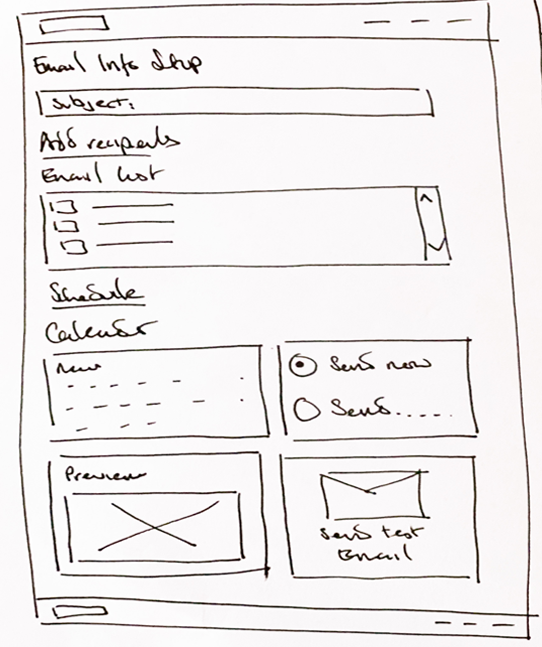 Email Info Setup
Subject:
Add recipents
Email List
Schedule
Calendar
Send now
Send.....
Preview
Send test
Email